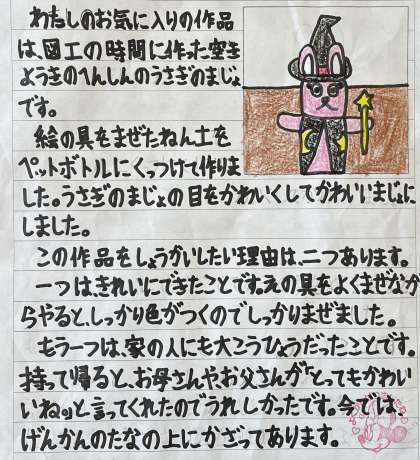 わたしのお気に入りの作品
は、図工の時間に作った空き
ようきのへんしんのうさぎのまじょ
です。
絵の具をまぜたねん土を
ペットボトルにくっつけて作りま
した。うさぎのまじょの目をかわいくしてかわいいまじょに
しました。
この作品をしょうかいしたい理由は、二つあります。
一つは、きれいにできたことです。えの具をよくまぜなが
らやると、しっかり色がつくのでしっかりまぜました。
もう一つは、家の人にも大こうひょうだったことです。
持って帰ると、お母さんやお父さんが「とってもかわい
いね。」と言ってくれたのでうれしかったです。今では、
げんかんのたなの上にかざってあります。